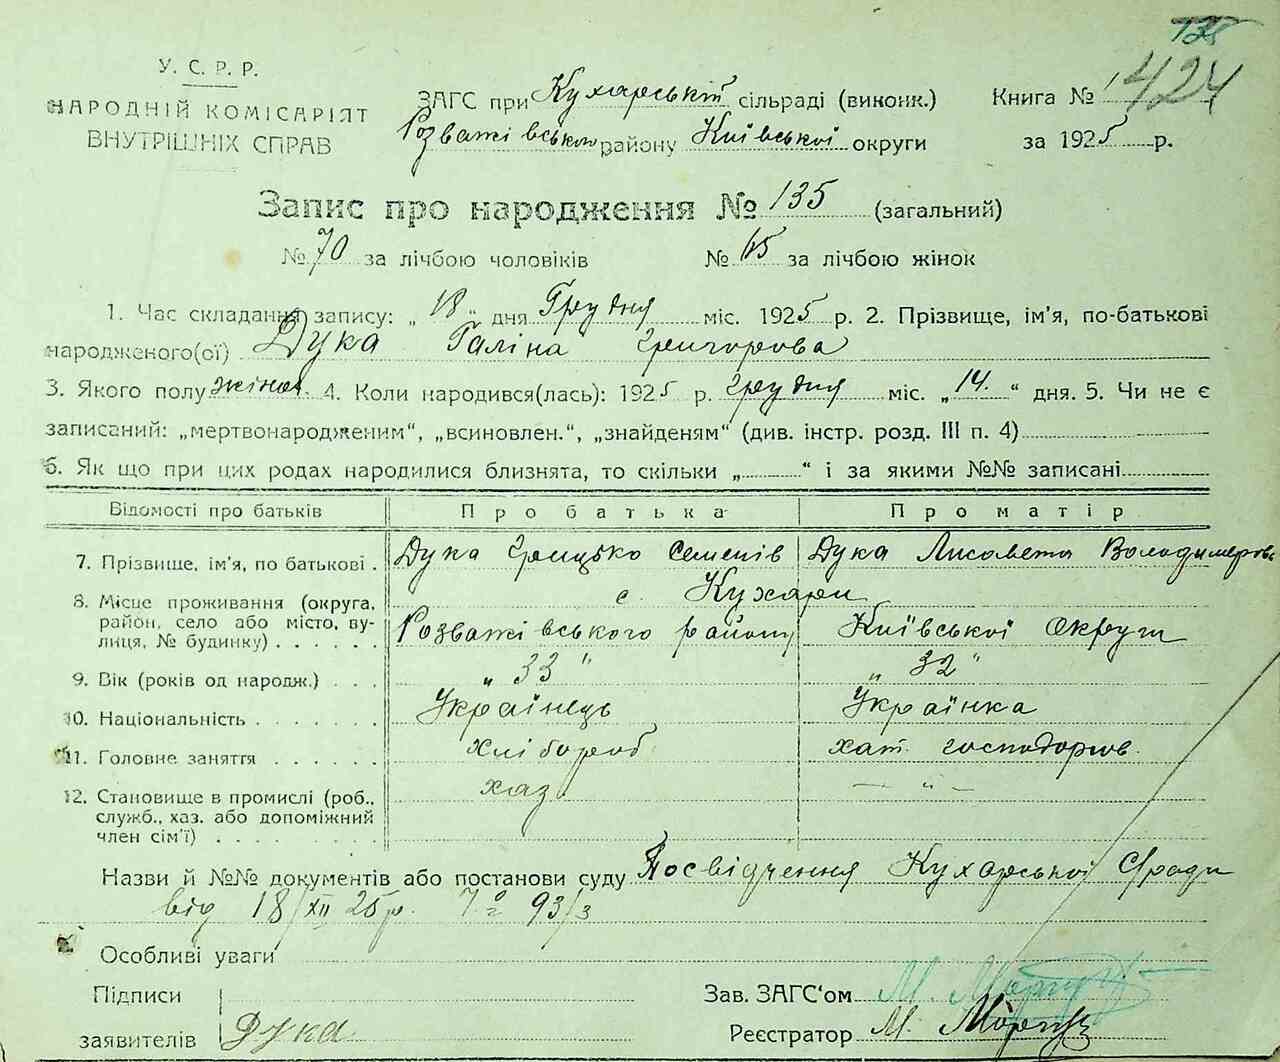 135
У. С. Р. Р.
НАРОДНІЙ КОМІСАРІЯТ
ВНУТРІШНІХ СПРАВ
ЗАГС при Кухарській сільраді (виконк.) Книга № 424
Розважівського району Київської округи за 1925 р.
Запис про народження № 135 (загальний)
№ 70 за лічбою чоловіків № 65 за лічбою жінок
1. Час складання запису: „ 18 “ дня Грудня міс. 1925 р. 2. Прізвище, ім'я, по-батькові
народженого(ої) Дука Галіна Григорова
3. Якого полу жіноч. 4. Коли народився(лась): 1925 р. грудня міс. „ 14. “ дня. 5. Чи не є
записаний: „мертвонародженим“, „всиновлен.“, „знайденям“ (див. інстр. розд. III п. 4)
6. Як що при цих родах народилися близнята, то скільки „ “ і за якими №№ записані
Відомості про батьків Про батька Про матір
7. Прізвище, ім'я, по батькові . Дука Грицько Семенів Дука Лисавета Володимерова
8. Місце проживання (округа, с. Кухари
район, село або місто, ву- Розважівського району Київської Округи
лиця, № будинку) . . . . . .
9. Вік (років од народж.) . . . „ 33 “ „ 32 “
10. Національність . . . . . . . Українець Українка
11. Головне заняття . . . . . . хлібороб хат. господарюв.
12. Становище в промислі (роб., хаз. — „ —
служб., хаз. або допоміжний
член сім'ї) . . . . . . . .
Назви й №№ документів або постанови суду Посвідчення Кухарської С/ради
від 18/XII 25 р. 93/3
Особливі уваги
Підписи Зав. ЗАГС'ом М.
заявителів Дука Реєстратор М.